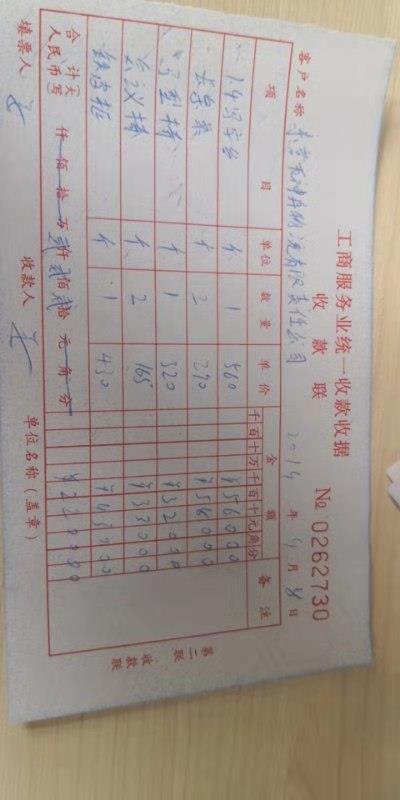 工商服务业统一收款收据
收款联 № 0262730
客户名称 有限责任公司 2014 年 4 月 8 日
项目 单位 数量 单价 金额 备注
千百十万千百十元角分
1.4写字台 个 1 560 ¥56000
个 2 290 ¥58000
弓型椅 个 1 320 ¥32000
会议椅 个 2 165 ¥33000
铁皮柜 个 1 430 ¥43000
合计(大写)人民币 仟佰拾万贰仟贰佰贰拾元角分 ¥222000
填票人 收款人 单位名称(盖章)
第二联 收款联